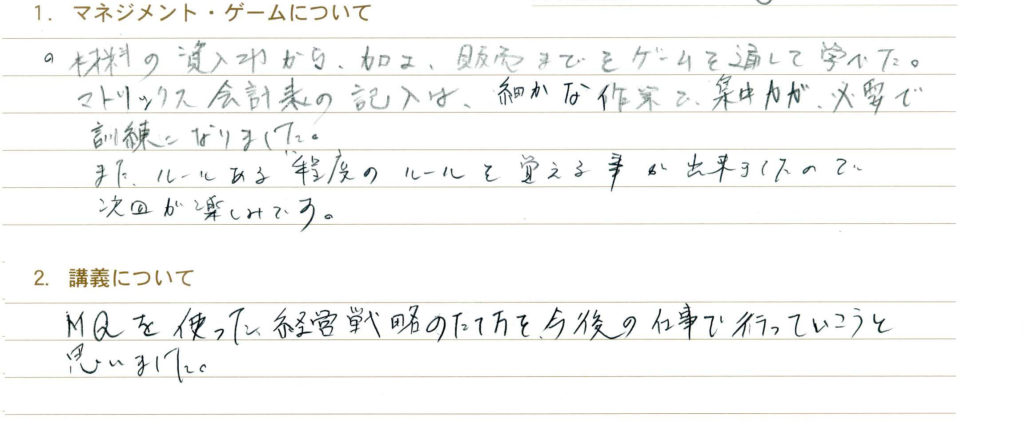 1. マネジメント・ゲームについて
。材料の資入れから、加工、販売までをゲームを通して学べた。
マトリックス会計表の記入は、細かな作業で、集中力が、必要で
訓練になりました。
また、ルールある程度のルールを覚える事が出来ましたので
次回が楽しみです。
2. 講義について
MQを使った、経営戦略のたて方を、今後の仕事で行っていこうと
思いました。